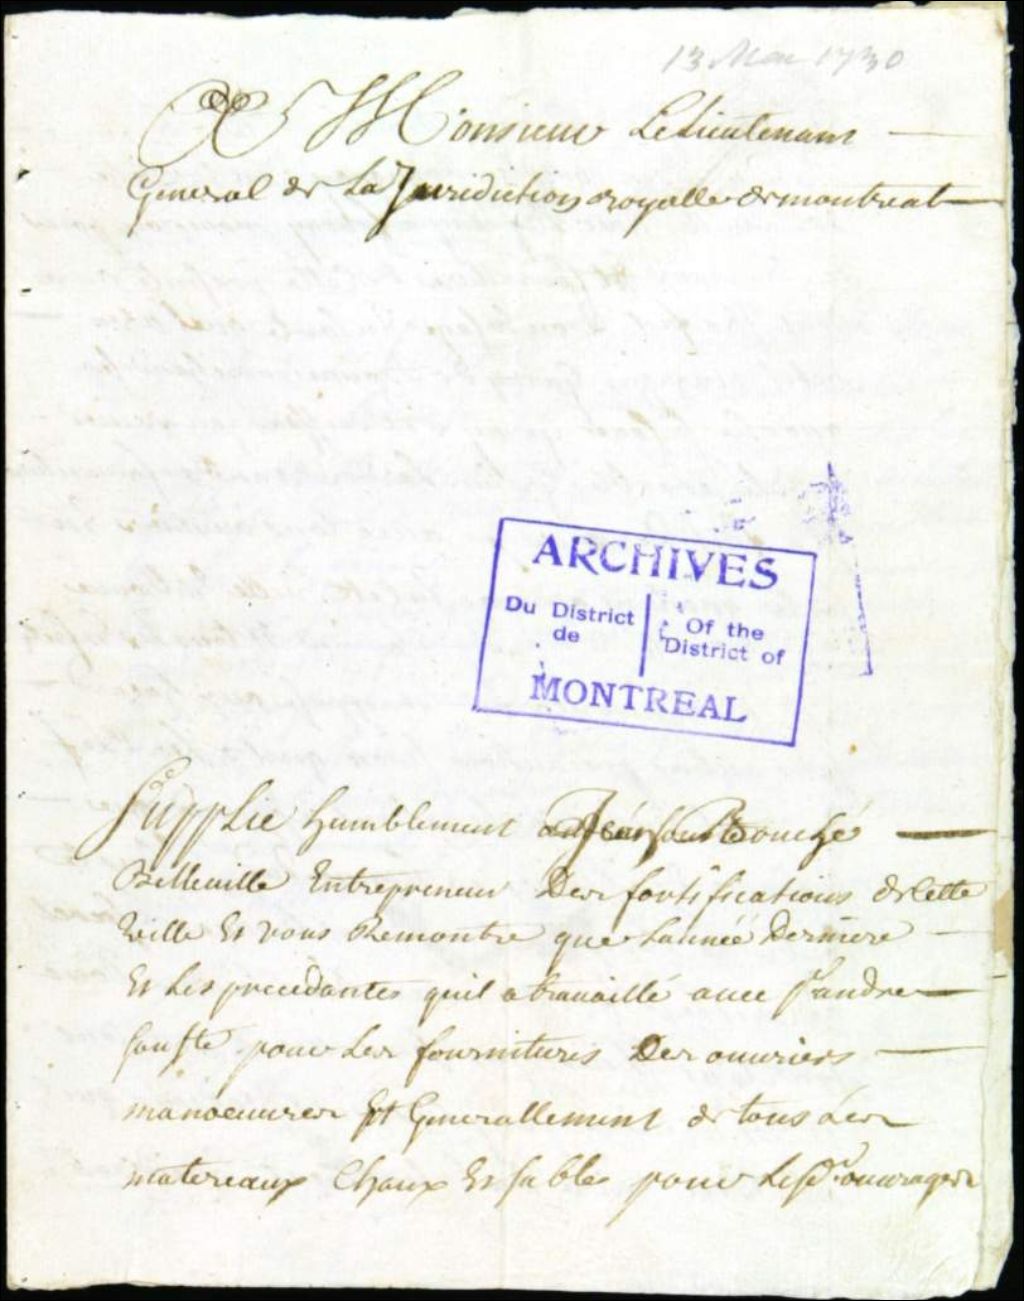 13 Mai 1730
A Monsieur Le Lieutenant
General de La Juridiction royalle de montreal
ARCHIVES
Du District de
Of the District of
MONTREAL
Supplie humblement
Belleville Entrepreneur Des fortifications de Cette
Ville Et vous Remontre que Lannée Derniere
Et Les precedantes quil a travaillé avec
pour Les fournitures Des ouvriers
manoeuvres Et Generallement de tous Les
matereaux Chaux Et sables pour Lesd. ouvrages